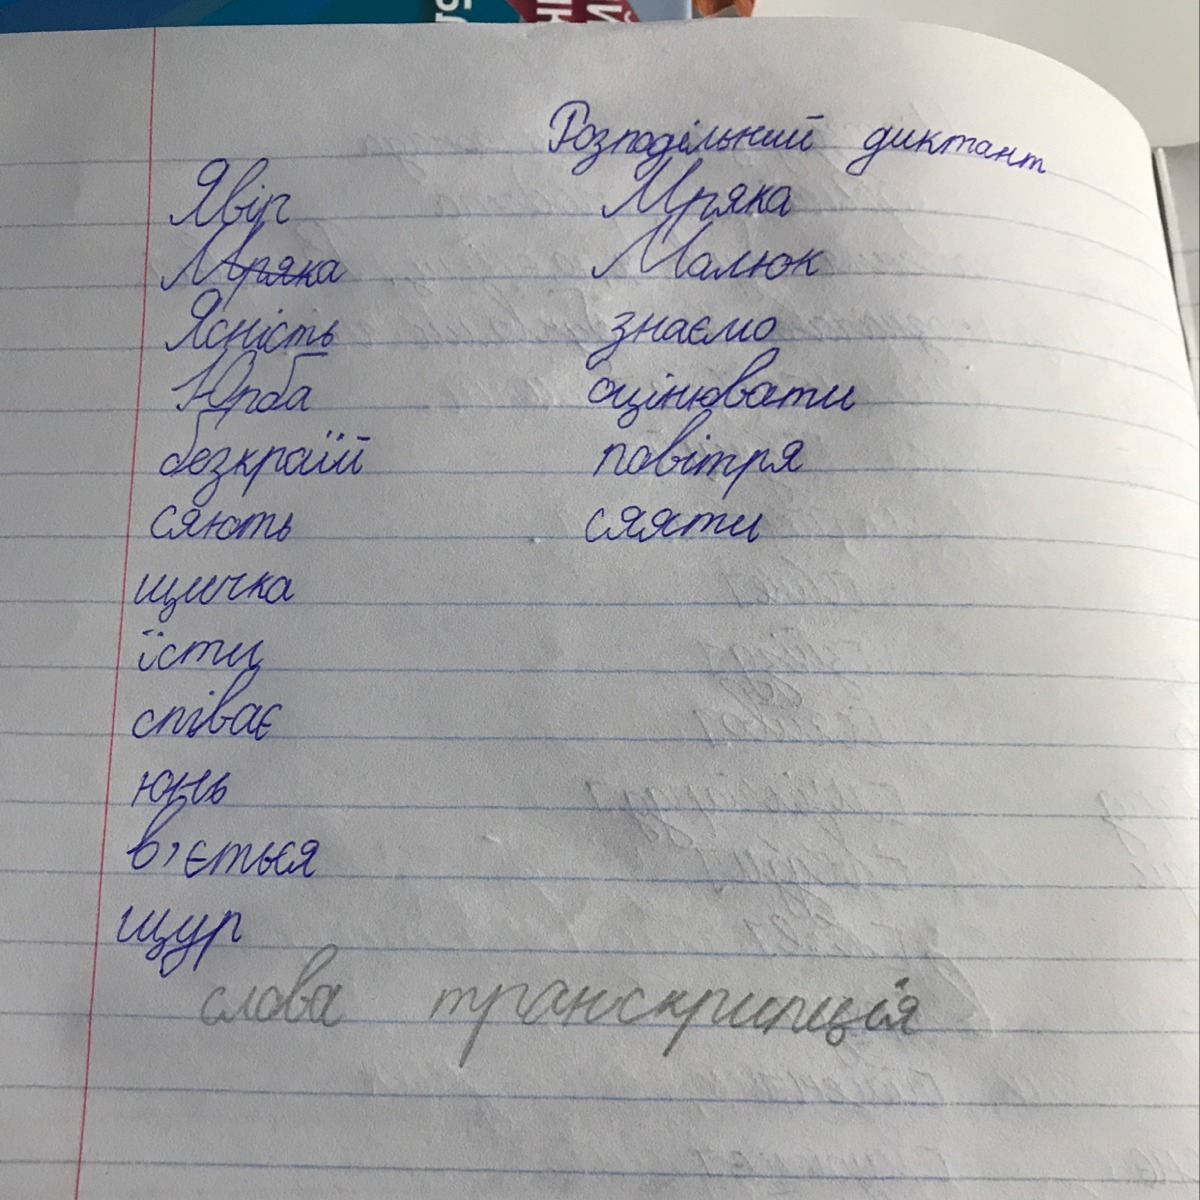 Розподільний диктант
Явір Мряка
Мряка Малюк
Ясність знаємо
Юрба оцінювати
безкраїй повітря
сяють сяяти
щичка
їсти
співає
юнь
в'ється
щур
слова транскрипція